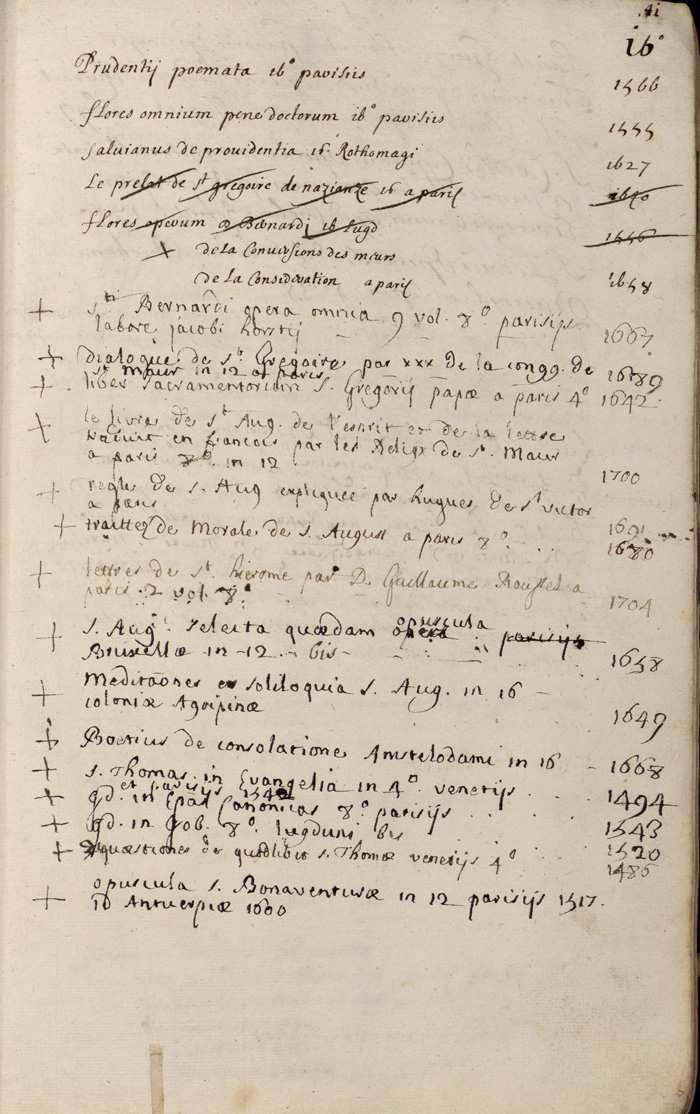 41
16°
Prudentij poemata 16° parisiis 1566
flores omnium pene doctorum 16° parisiis 1555
saluianus de prouidentia 16. Rothomagi 1627
Le prelat de st gregoire de nazianze 16 a paris 1640
flores operum D Bernardi 16 lugd 1556
+ de la Conversions des mœurs
de la Consideration a paris 1658
+ sti Bernardi opera omnia 9 vol. 8°. parisijs
labore jacobi horstij 1667
+ dialogue de st Gregoire par xxx de la congg. de
st maur in 12 a paris 1689
+ liber sacramentorium S. Gregorij papæ a paris 4° 1642.
+ le livre de st Aug. de l'esprit et de la lettre
traduit en francois par les Religx de st. Maur
a paris 8°. in 12 1700
+ regle de s. Aug expliquée par hugues de st victor
a paris 1691
+ traittez de Morale de s. August a paris 8°. 1680
+ lettres de st. hierome par D. Guillaume Roussel a
paris 2 vol. 8°. 1704
+ S. Augi. selecta quædam opera opuscula parisijs
Bruxellæ in-12 - bis - 1658
+ Meditaones et soliloquia s. Aug. in 16 -
coloniæ Agripinæ 1649
+ Boetius de consolatione Amstelodami in 16 - 1668
+ s. Thomas in Evangelia in 4°. venetijs 1494
et parisijs 1540
+ qd. in Epas Canonicas 8°. parisijs 1543
+ qd. in Job. 8°. lugduni bis 1520
+ quæstiones de quodlibet s. Thomæ venetijs 4° 1486
+ opuscula s. Bonaventuræ in 12 parisijs 1517.
ID Antuerpiæ 1600